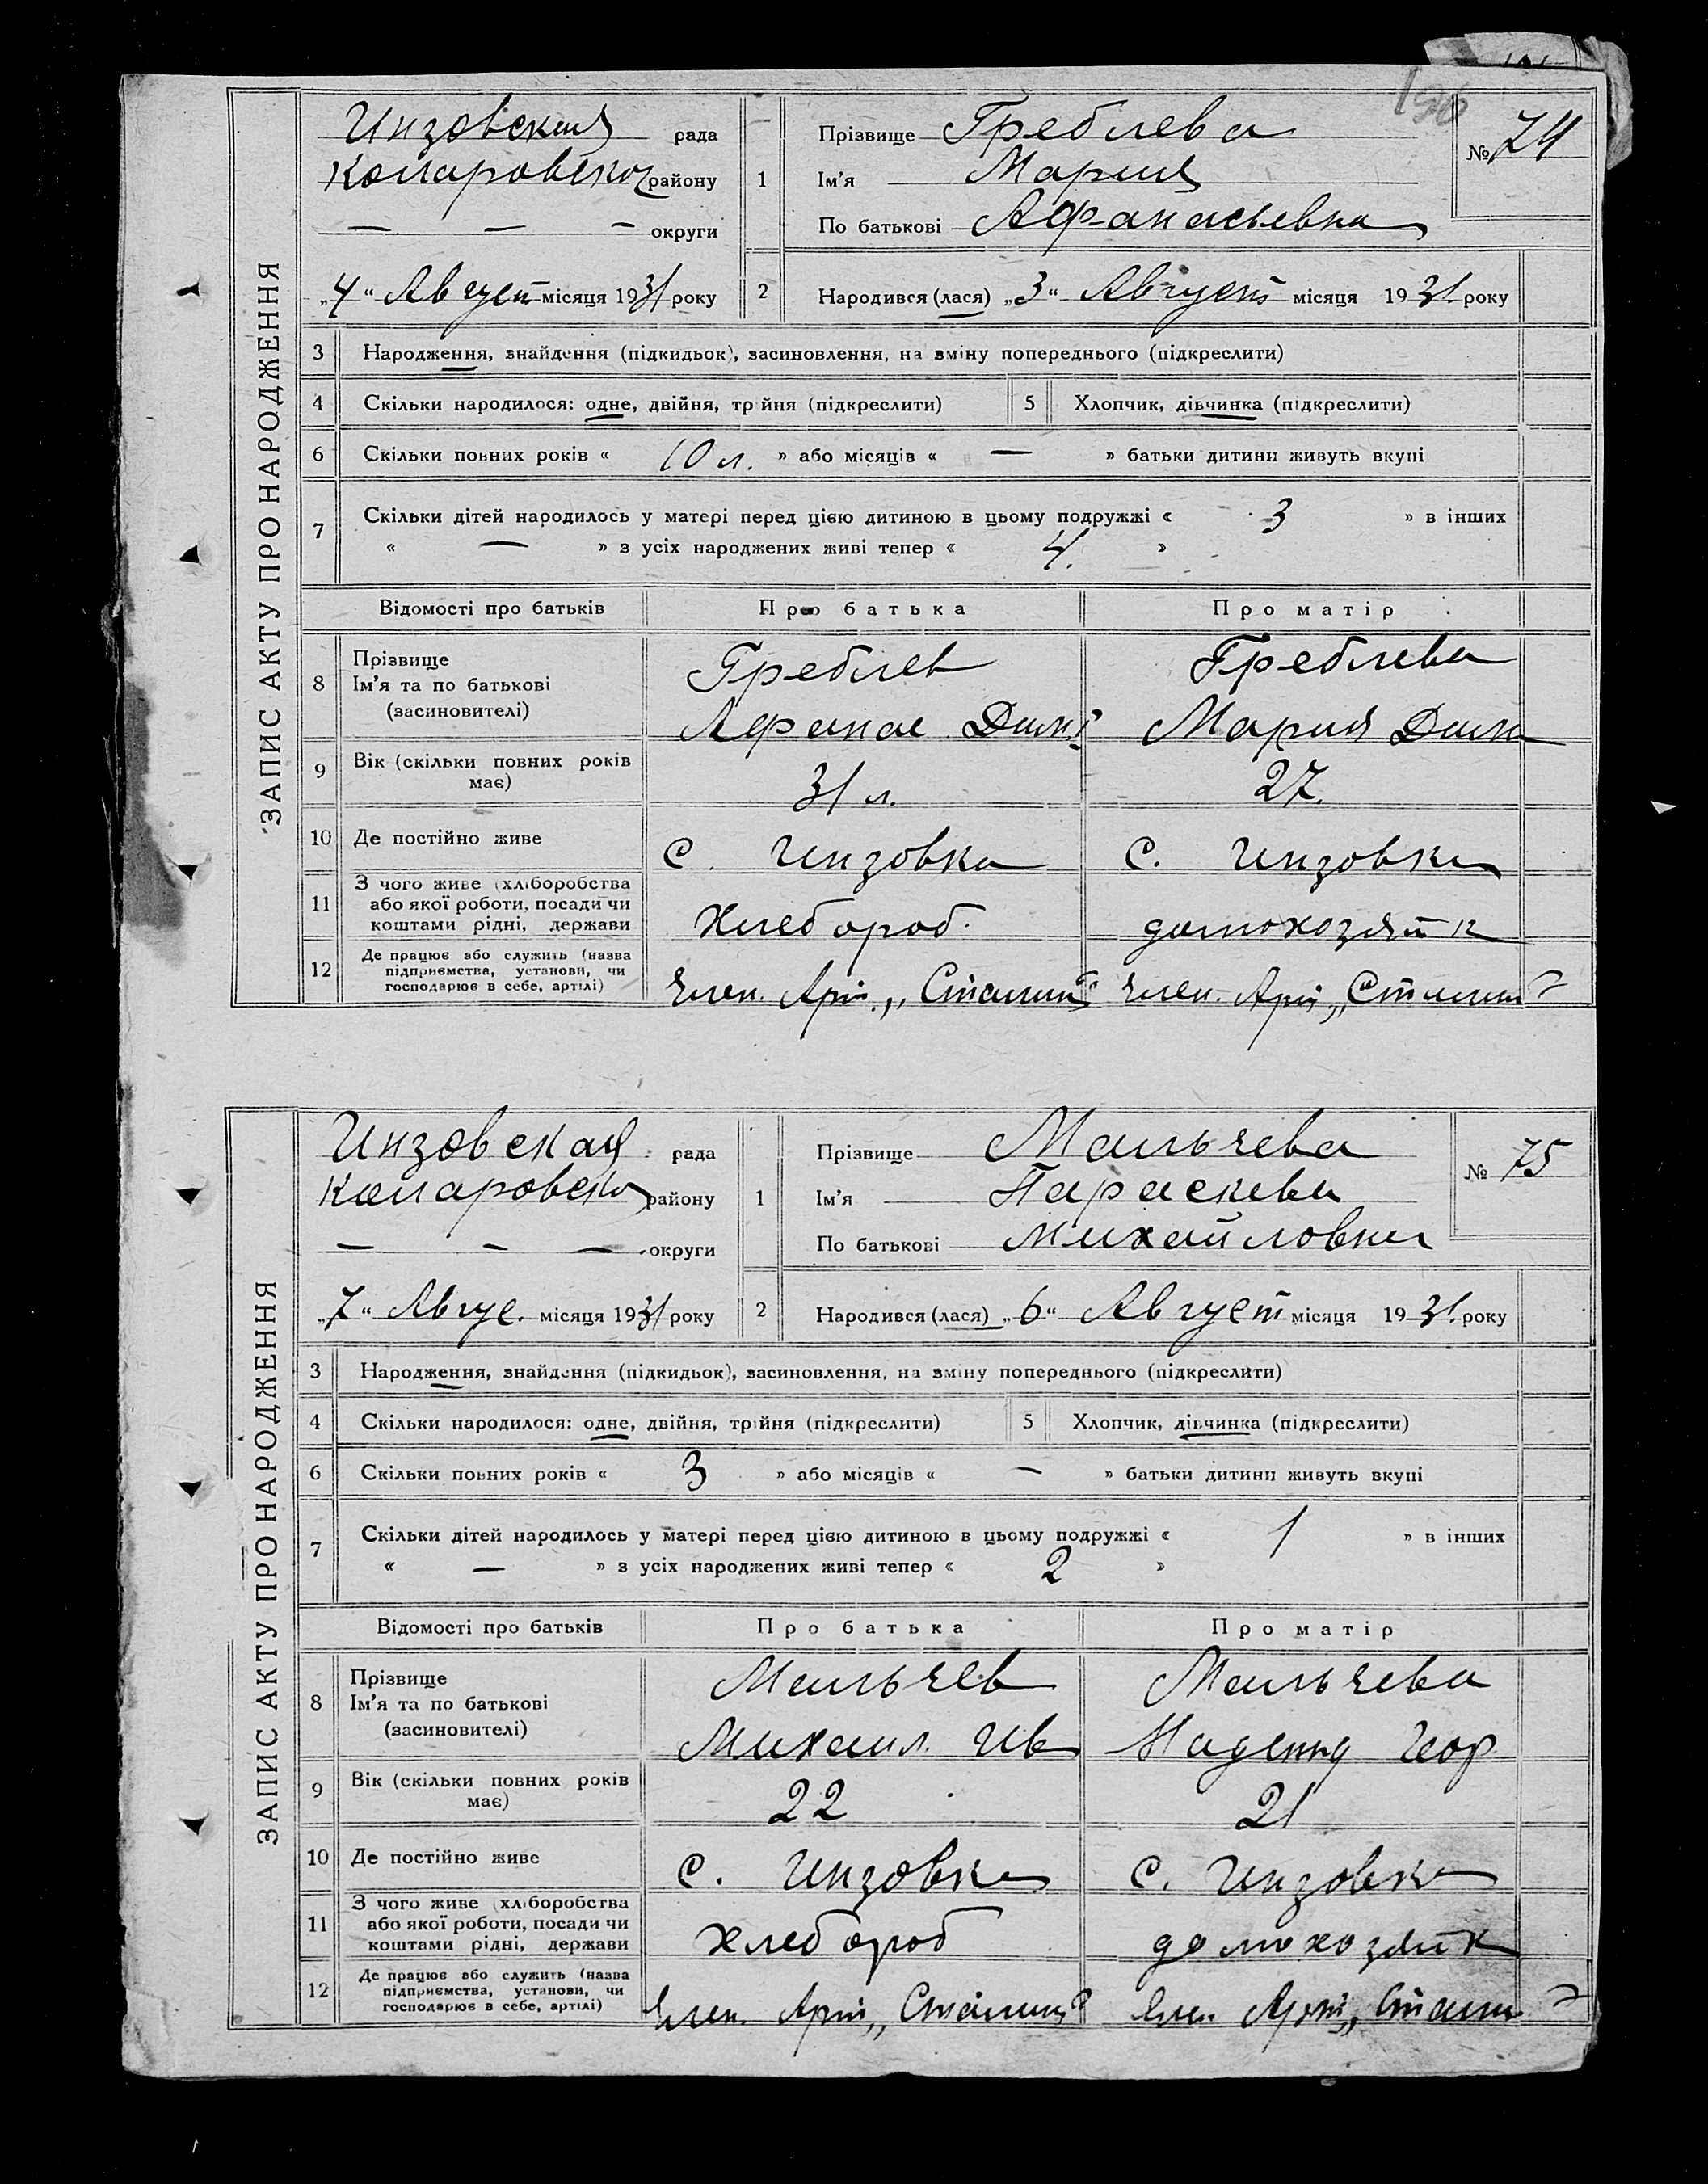 196
ЗАПИС АКТУ ПРО НАРОДЖЕННЯ
Инзовская рада
Коларовско района району
— — — округи
„4“ Август місяця 1931 року
1
Прізвище Греблева
Ім'я Мария
По батькові Афанасьевна
№ 74
2
Народився (лася) „3“ Август місяця 1931. року
3 Народження, знайдення (підкидьок), засиновлення, на зміну попереднього (підкреслити)
4 Скільки народилося: одне, двійня, трійня (підкреслити) 5 Хлопчик, дівчинка (підкреслити)
6 Скільки повних років « 10 л. » або місяців « — » батьки дитини живуть вкупі
7 Скільки дітей народилось у матері перед цією дитиною в цьому подружжі « 3 » в інших
« — » з усіх народжених живі тепер « 4. »
Відомості про батьків Про батька Про матір
8 Прізвище Греблев Греблева
Ім'я та по батькові
(засиновителі) Афанас Дим Мария Дим
9 Вік (скільки повних років
має) 31 л. 27.
10 Де постійно живе с. Инзовка с. Инзовка
11 З чого живе (хліборобства
або якої роботи, посади чи
коштами рідні, держави Хлебороб. домохозяйк
12 Де працює або служить (назва
підприємства, установи, чи
господарює в себе, артілі) Член. Арт. „Сталин“ Член. Арт „Сталин“
ЗАПИС АКТУ ПРО НАРОДЖЕННЯ
Инзовская рада
Коларовско району
— — — округи
„7“ Авгус. місяця 1931 року
1
Прізвище Мальчева
Ім'я Параскева
По батькові Михайловна
№ 75
2
Народився (лася) „6“ Август місяця 1931. року
3 Народження, знайдення (підкидьок), засиновлення, на зміну попереднього (підкреслити)
4 Скільки народилося: одне, двійня, трійня (підкреслити) 5 Хлопчик, дівчинка (підкреслити)
6 Скільки повних років « 3 » або місяців « — » батьки дитини живуть вкупі
7 Скільки дітей народилось у матері перед цією дитиною в цьому подружжі « 1 » в інших
« — » з усіх народжених живі тепер « 2 »
Відомості про батьків Про батька Про матір
8 Прізвище Мальчев Мальчева
Ім'я та по батькові
(засиновителі) Михаил. Ив Надежд Геор
9 Вік (скільки повних років
має) 22 21
10 Де постійно живе с. Инзовка с. Инзовка
11 З чого живе (хліборобства
або якої роботи, посади чи
коштами рідні, держави Хлебороб домохозяйк
12 Де працює або служить (назва
підприємства, установи, чи
господарює в себе, артілі) Член. Арт „Сталин“ Член. Арт „Сталин“